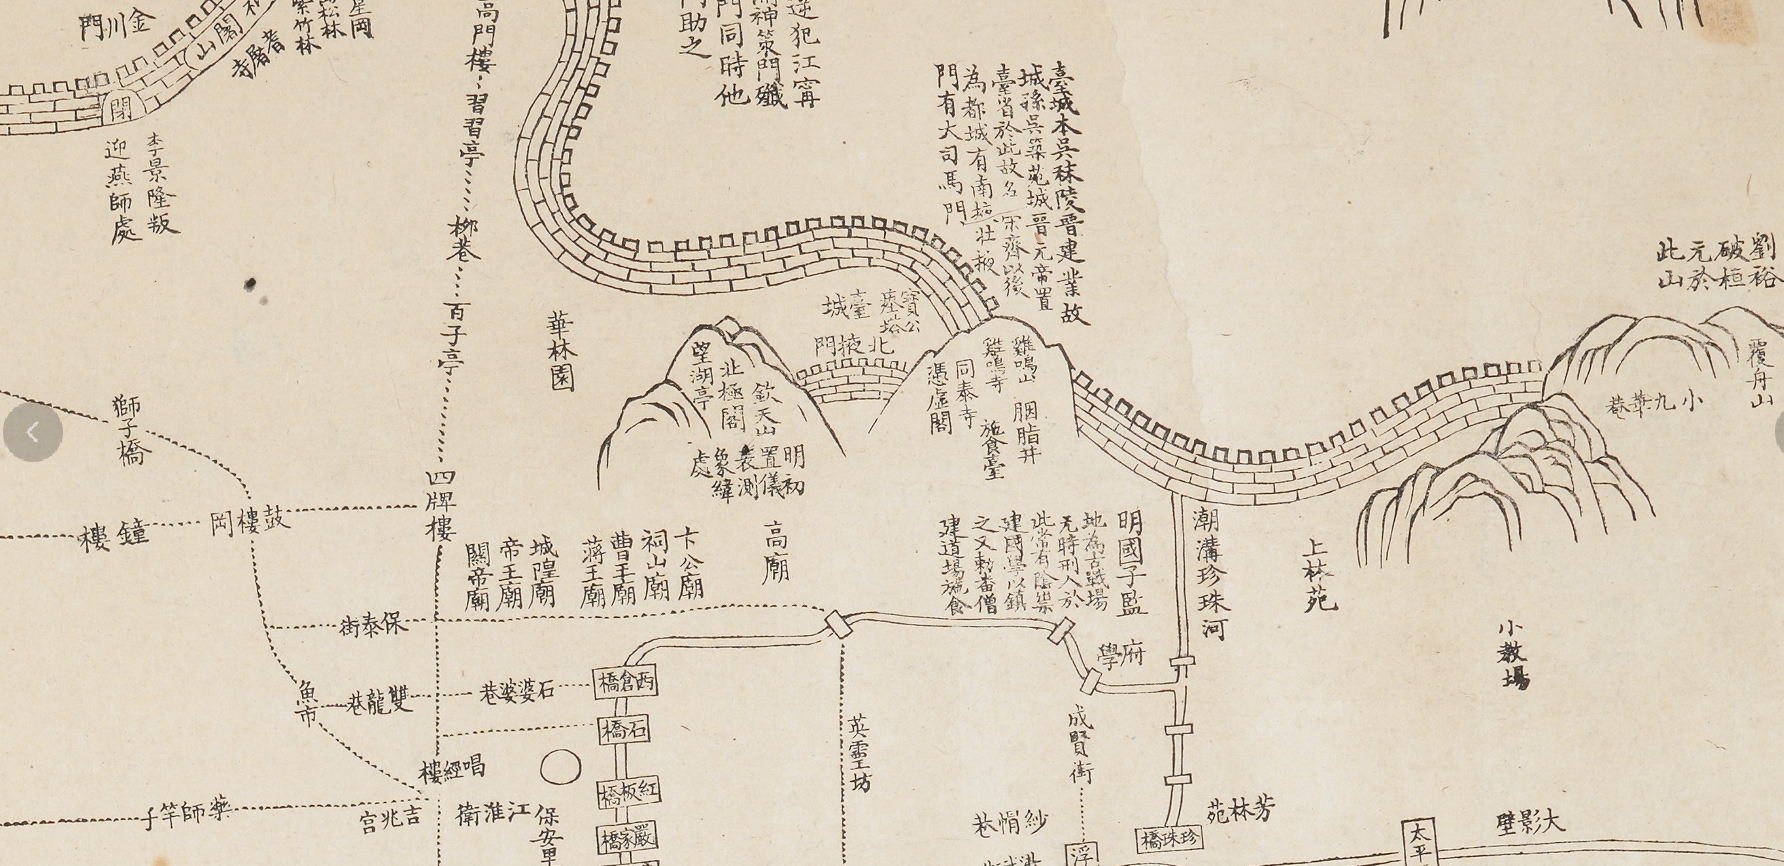 金川門
閉
李景隆叛
迎燕師處
高門樓
習習亭
柳巷
百子亭
四牌樓
紫竹林
松林
星岡
逆犯江甯
神策門殲
門同時他
門助之
臺城本吳秣陵晋建業故
城孫吳築苑城晋元帝置
臺省於此故名宋齊以後
為都城有南掖北掖
門有大司馬門
劉裕
破桓
元於
此山
覆舟山
小九華巷
華林園
臺城
寶公
塔
北掖門
望湖亭
北極閣
欽天山
明初
置儀
表測
象緯
處
雞鳴山
雞鳴寺
胭脂井
同泰寺
憑虛閣
施食臺
獅子橋
鐘樓
鼓樓岡
高廟
卞公廟
祠山廟
曹王廟
蔣王廟
城隍廟
帝王廟
關帝廟
明國子監
地為古戰場
元時刑人於
此常有陰祟
建國學以鎮
之又勅番僧
建道場施食
潮溝珍珠河
上林苑
小教場
保泰街
府學
魚市
雙龍巷
石婆婆巷
西倉橋
石橋
紅板橋
嚴家橋
英靈坊
成賢街
唱經樓
吉兆宮
江淮衛
藥師竿子
紗帽巷
芳林苑
珍珠橋
浮
太平
大影壁